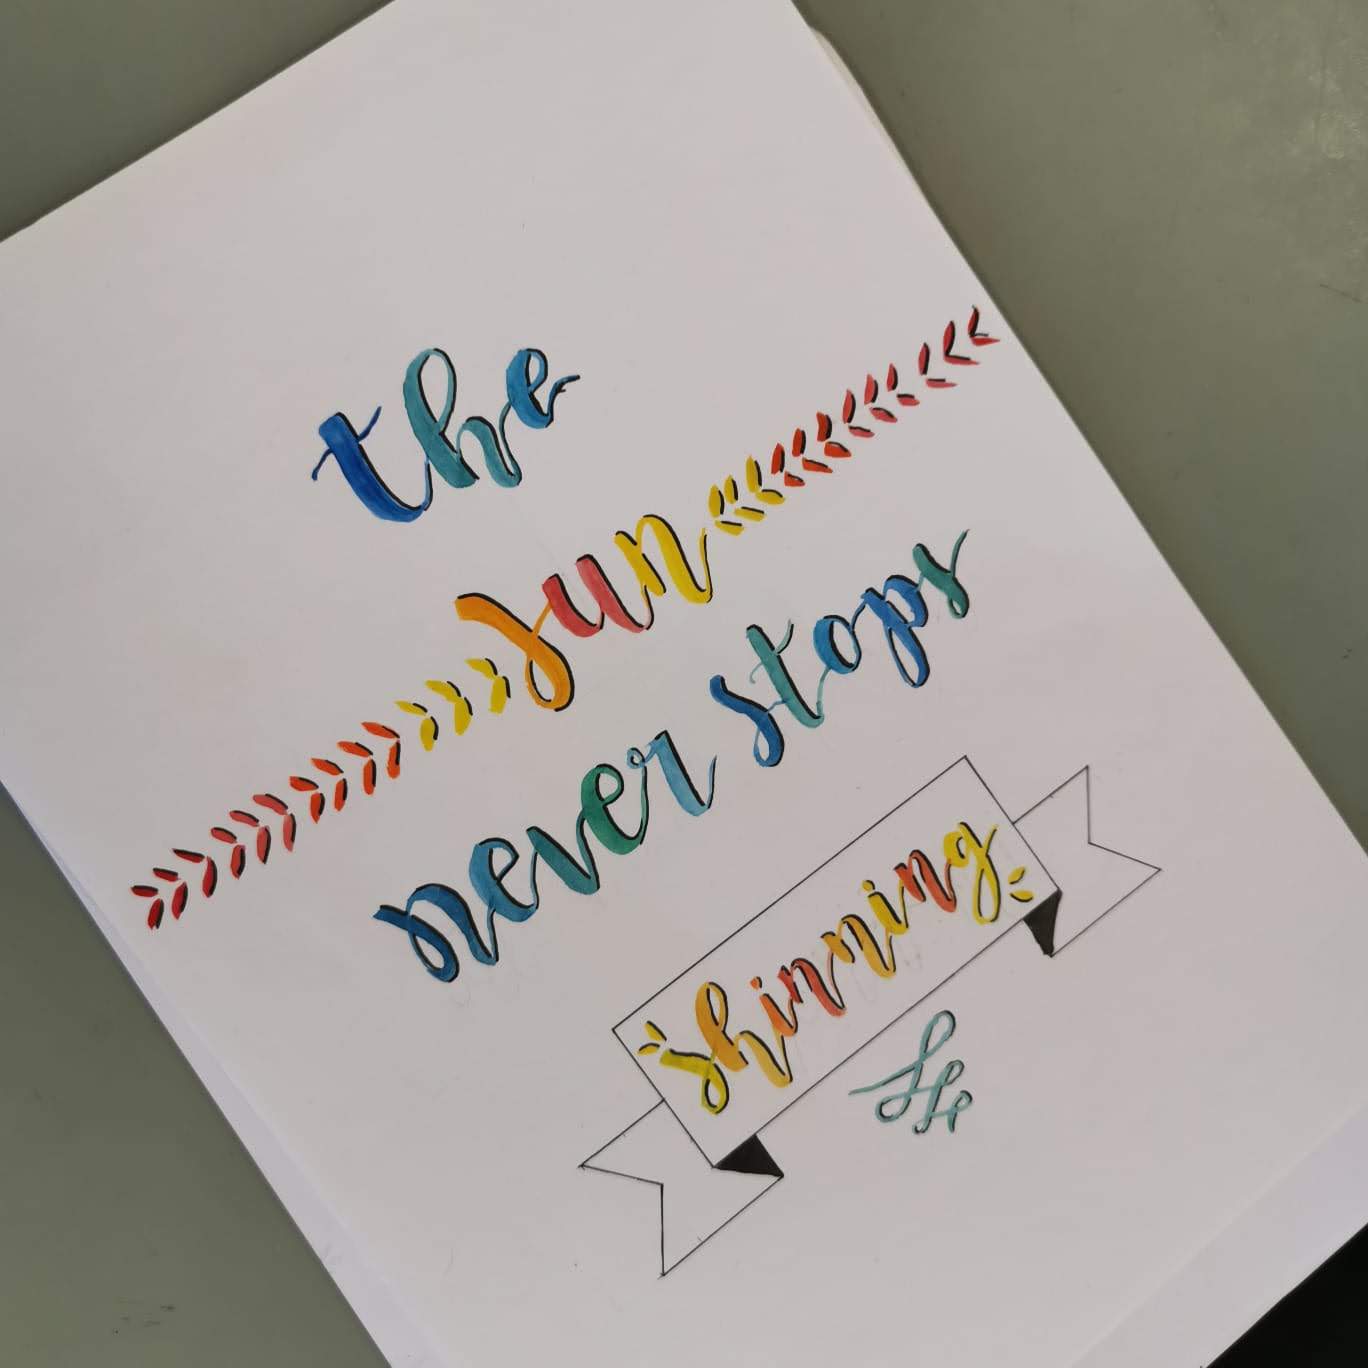 the
sun
never stops
shinning